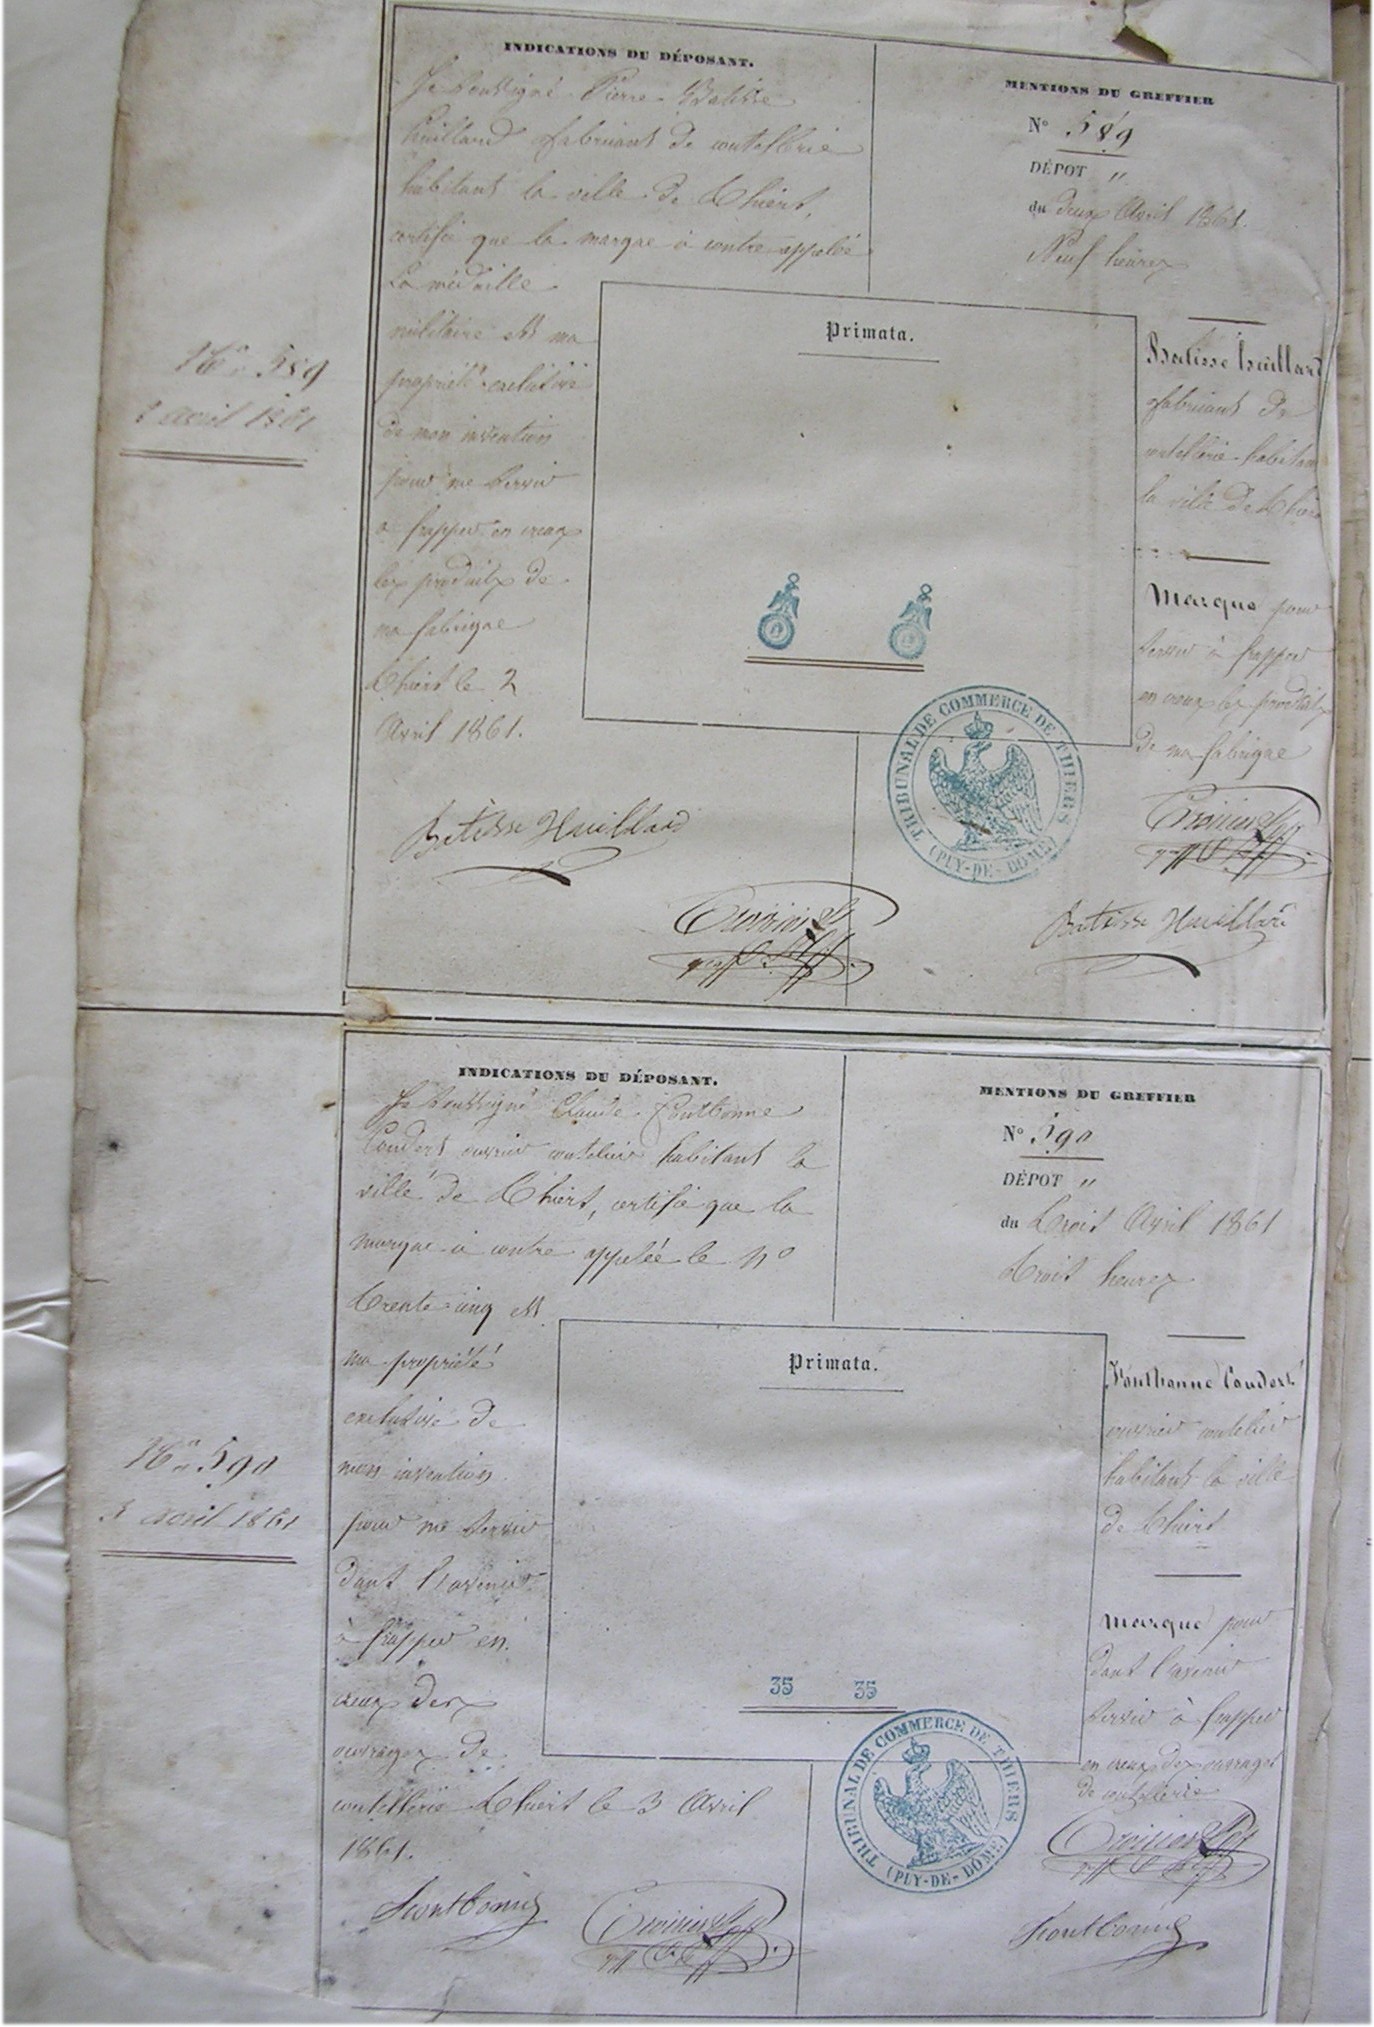 N° 589
2 avril 1861
INDICATIONS DU DÉPOSANT.
Je soussigné Pierre Batisse
huillard fabricant de coutellerie
habitant la ville de Thiers,
certifie que la marque ci contre appelée
La médaille
militaire est ma
propriété exclusive
de mon invention
pour me servir
à frapper en creux
les produits de
ma fabrique
Thiers le 2
Avril 1861.
Batisse Huillard
Primata.
MENTIONS DU GREFFIER
N° 589
DÉPOT "
du deux Avril 1861.
Neuf heures
Batisse huillard
fabricant de
coutellerie habitant
la ville de Thiers
Marque pour
servir à frapper
en creux les produits
de ma fabrique
TRIBUNAL DE COMMERCE DE THIERS
(PUY-DE-DÔME)
Batisse Huillard
N° 590
3 avril 1861
INDICATIONS DU DÉPOSANT.
Je soussigné Claude Fontbonne
Coudert ouvrier coutelier habitant la
ville de Thiers, certifie que la
marque ci contre appelée le N°
trente cinq est
ma propriété
exclusive de
mon invention
pour me servir
dans l'avenir
à frapper en
creux des
ouvrages de
coutellerie Thiers le 3 Avril
1861.
Fontbonne
Primata.
35 35
MENTIONS DU GREFFIER
N° 590
DÉPOT "
du trois Avril 1861
trois heures
Fontbonne Coudert
ouvrier coutelier
habitant la ville
de Thiers
Marque pour
dans l'avenir
servir à frapper
en creux des ouvrages
de coutellerie
TRIBUNAL DE COMMERCE DE THIERS
(PUY-DE-DÔME)
Fontbonne